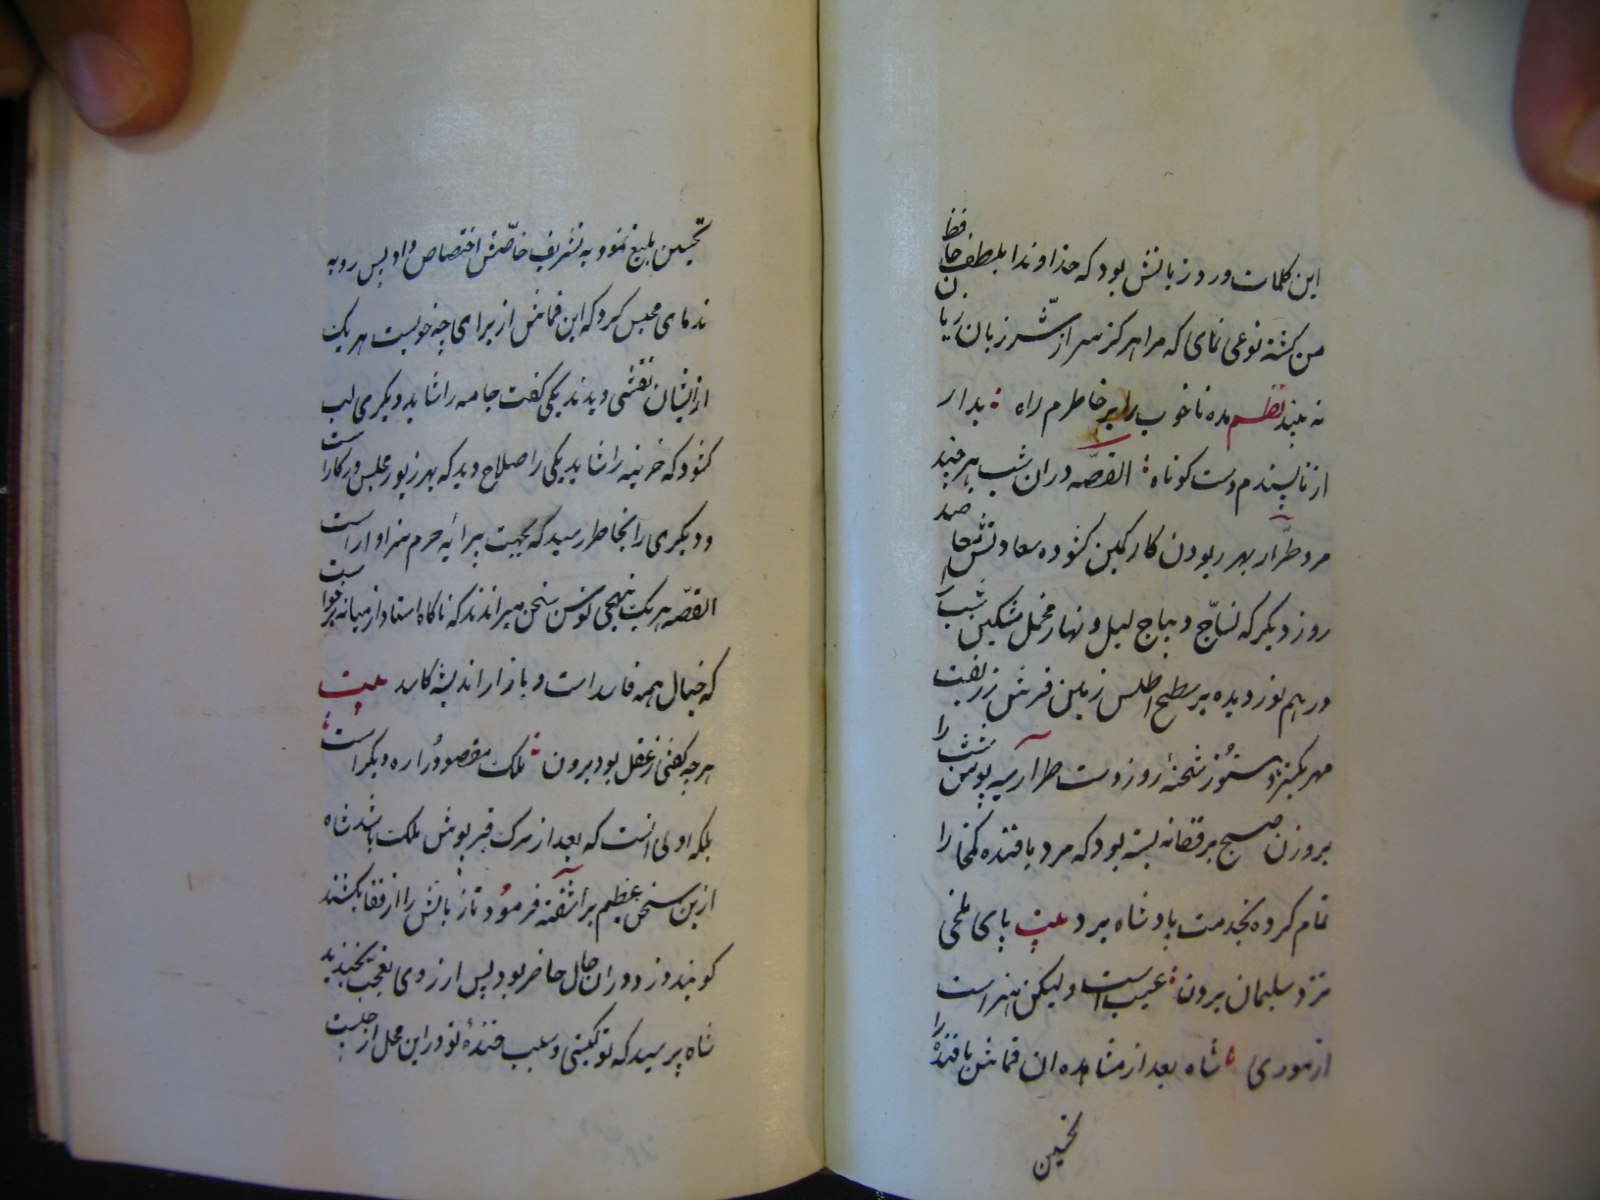 این کلمات ورد زبانش بود که خداوندا بلطف حافظ
من کشته نوعی نمای که مرا هرگز سر از شر زبان زیان
نه بیند نظم مده ناخوب را بر خاطرم راه بدار
از ناپسندم دست کوتاه القصّه دران شب هرچند
مرد طرّار بهر ربودن کار کمین کشوده سعادتش
روز دیگر که نسّاج دیباج لیل و نهار مخمل مشکین شب را
در هم نوردیده بر سطح اطلس زمین فرش زربفت
مهر بگسترد شحنهٔ روز دست طرار سیه پوش شب را
بروزن صبح بر قفا بسته بود که مرد بافنده کمخا را
تمام کرده بخدمت پادشاه برد بیت پای ملخی
نزد سلیمان بردن عیب است ولیکن هنر است
از موری شاه بعد از مشاهده ان قماش بافنده را
تحسین
تحسین بلیغ نمود به تشریف خاصّش اختصاص داد پس رو به
ندمای مجلس کرد که این قماش از برای چه خوبست هر یک
از ایشان نقشی دیدند یکی کفت جامه را شاید دیکری لب
کشود که خزینه را شاید یکی را صلاح دید که بهر زیور مجلس در کار است
و دیکری را بخاطر رسید که بجهت پیرایه حرم سزاوار است
القصّه هر یک بنهجی توسن سخن میراندند که ناکاه استاد از میانه برخواست
که خیال همه فاسد است و بازار اندیشه کاسد بیت
هرچه کفتی ز عقل بود برون ملک مقصود را ره دیکر است
بلکه اولی انست که بعد از مرک قبرپوش ملک باشد شاه
ازین سخن عظیم براشفته فرمود تا زبانش را از قفا بکشند
کویند دزد دران حال حاضر بود پس از روی تعجّب بخندید
شاه پرسید که تو کیستی و سبب خندهٔ تو در این محل از چیست